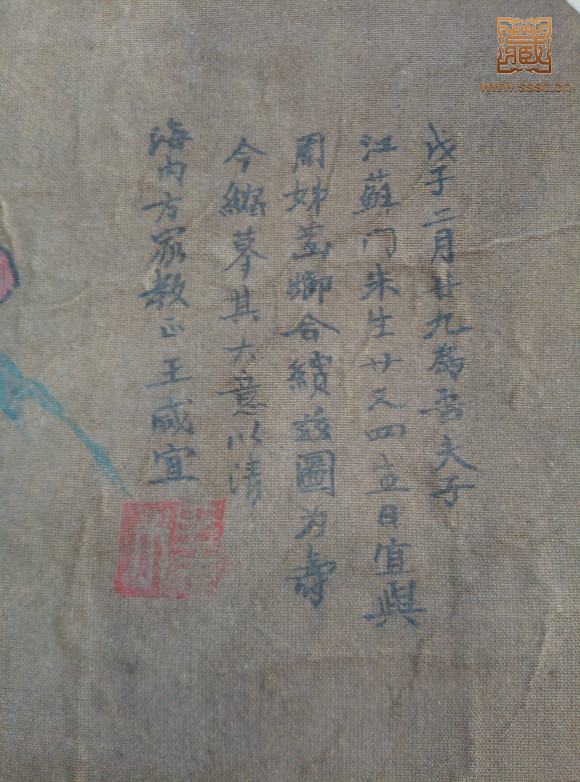 戊子二月廿九為吾夫子
江蘇门朱生廿又四五日宜與
周姊茝卿合繢兹圖为壽
今縮摹其大意以请
海内方家教正王咸宜
藏
www.sssc.cn